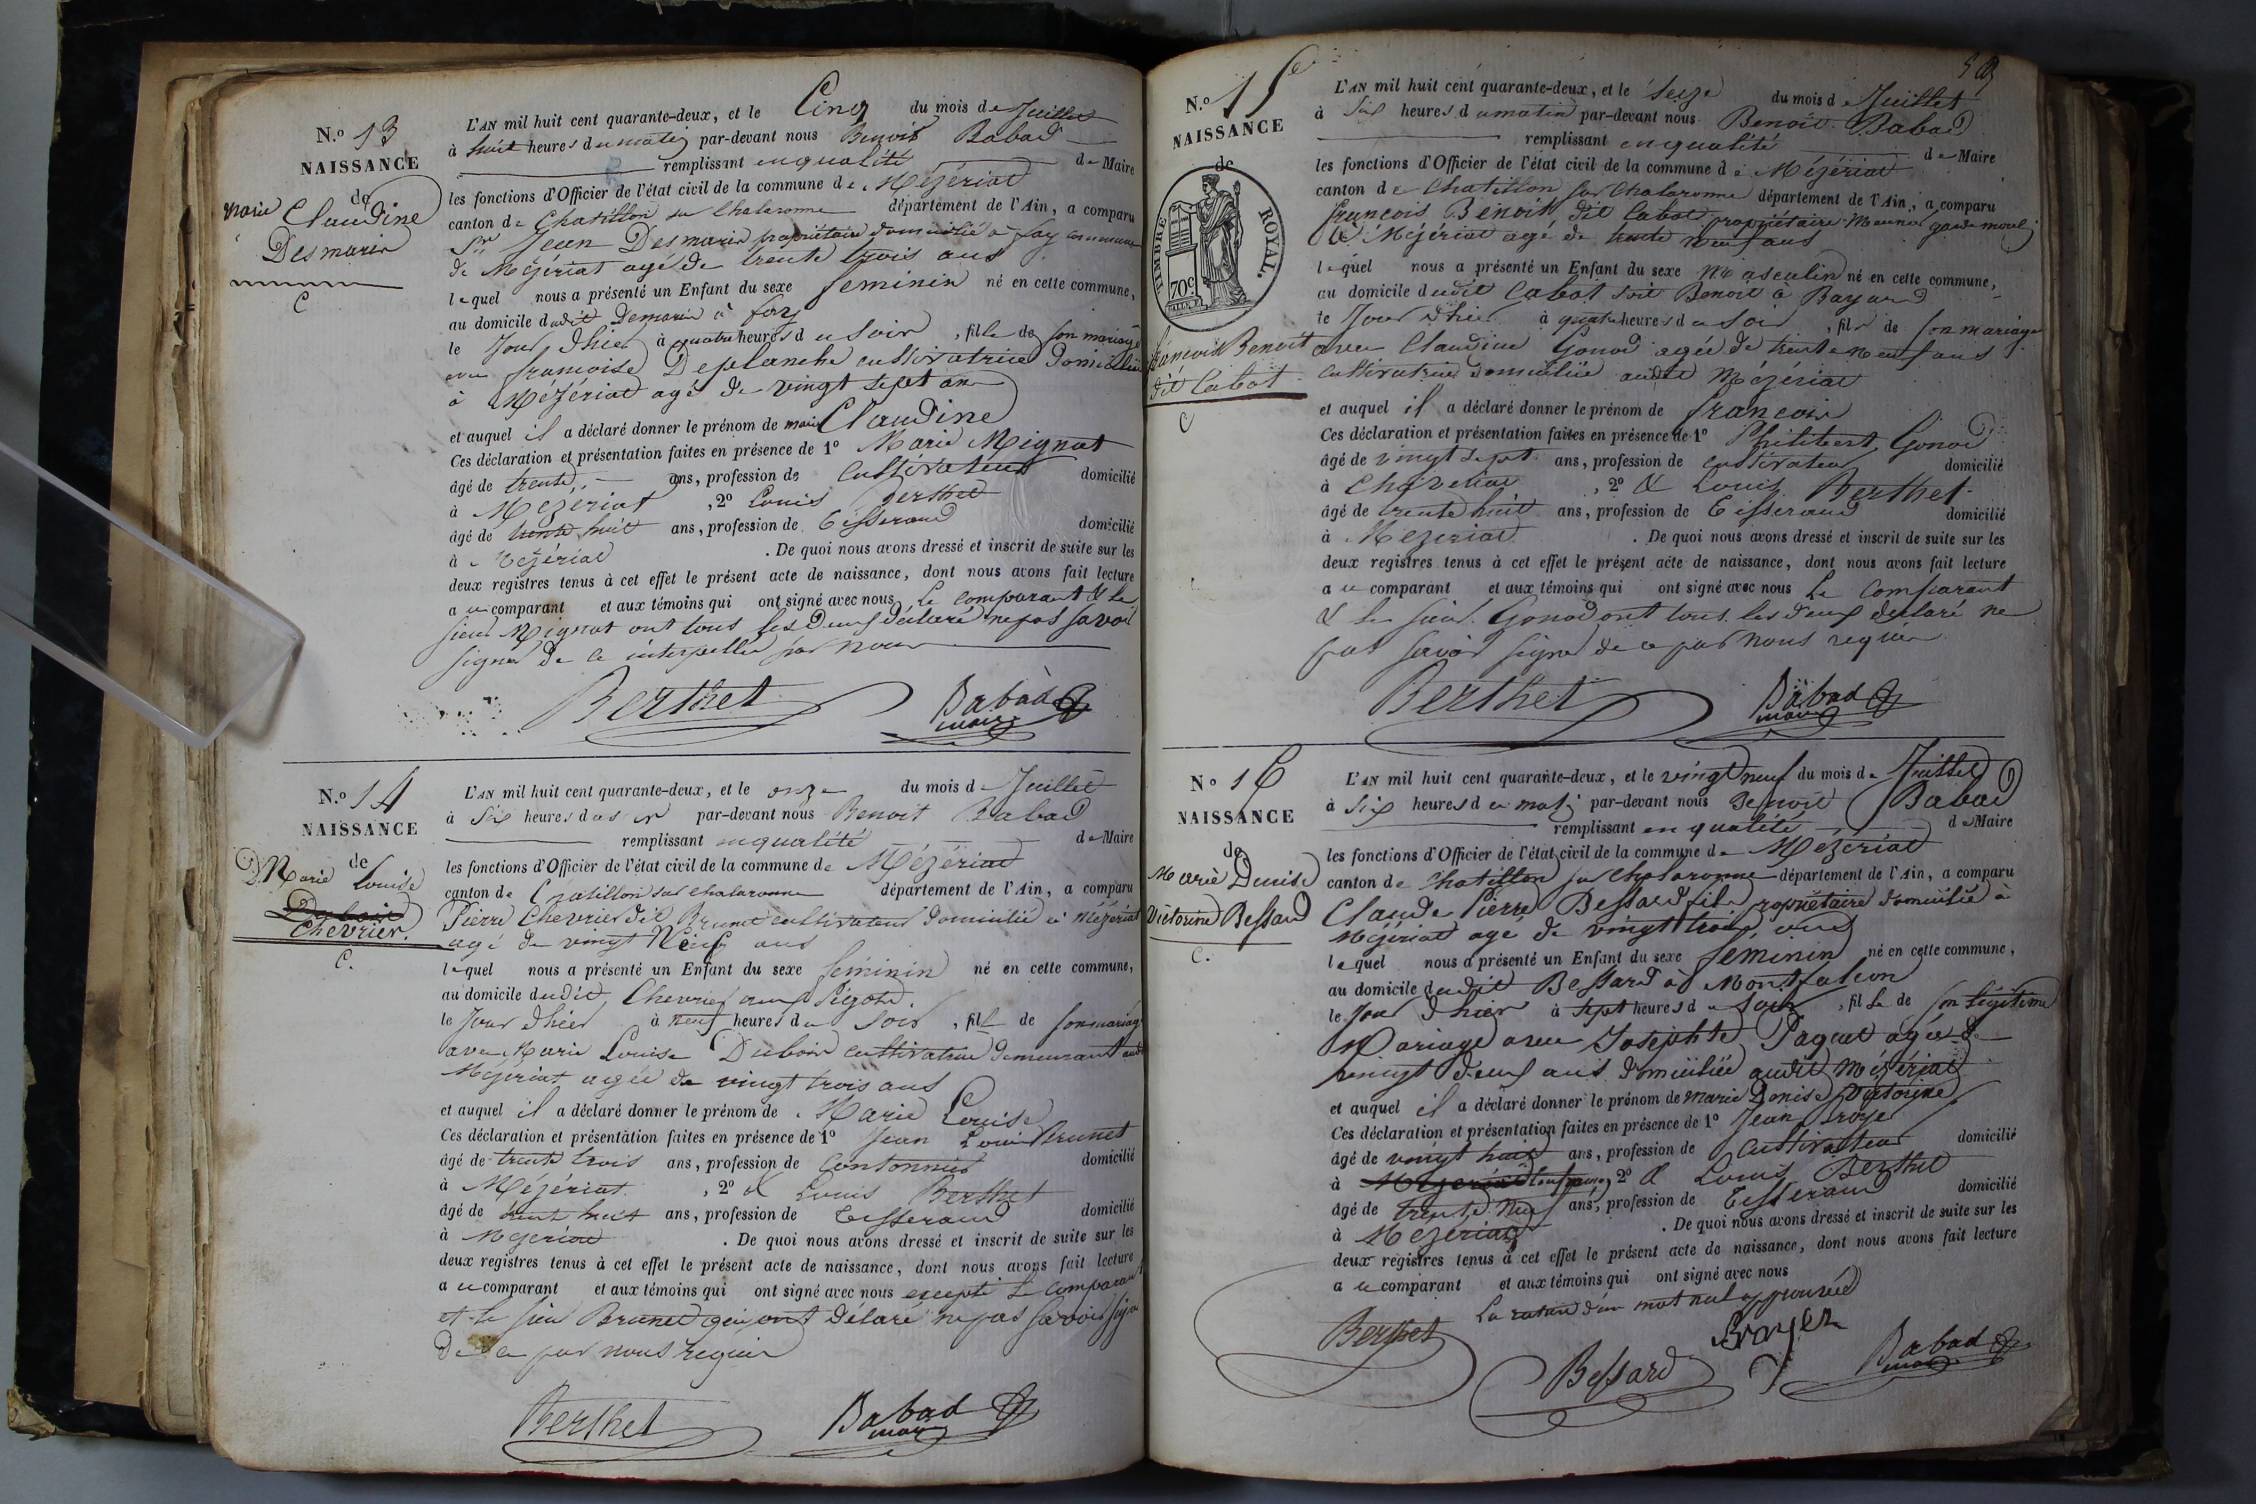 N.o 13
NAISSANCE
de
Marie Claudine
Desmaris
C
L'AN mil huit cent quarante-deux, et le Cinq du mois de Juillet
à huit heures du matin par-devant nous Benoit Babad
remplissant en qualité de Maire
les fonctions d'Officier de l'état civil de la commune de Mézériat
canton de Chatillon sur Chalaronne département de l'Ain, a comparu
Sr Jean Desmaris propriétaire domicilié à fay commune
de Mézériat agé de trente trois ans
lequel nous a présenté un Enfant du sexe feminin né en cette commune,
au domicile dudit Demaris à fay
le Jour d'hier à quatre heures du soir, fille de son mariage
avec françoise Deplanche cultivatrice domiciliée
à Mézériat agée de vingt sept ans
et auquel il a déclaré donner le prénom de marie Claudine
Ces déclaration et présentation faites en présence de 1o Marie Mignot
âgé de trente ans, profession de Cultivateur domicilié
à Mézériat, 2o Louis Berthet
âgé de trente huit ans, profession de Tisserand domicilié
à Mézériat. De quoi nous avons dressé et inscrit de suite sur les
deux registres tenus à cet effet le présent acte de naissance, dont nous avons fait lecture
au comparant et aux témoins qui ont signé avec nous Le Comparant & le
sieur Mignot ont tous les deux déclaré ne pas savoir
signer de ce interpellés par nous
Berthet Babad
maire
N.o 14
NAISSANCE
de
Marie Louise
Dubois
Chevrier.
C.
L'AN mil huit cent quarante-deux, et le onze du mois de Juillet
à six heures du soir par-devant nous Benoit Babad
remplissant en qualité de Maire
les fonctions d'Officier de l'état civil de la commune de Mézériat
canton de Chatillon sur Chalaronne département de l'Ain, a comparu
Pierre Chevrier dit Brunet cultivateur domicilié à Mézériat
agé de vingt Neuf ans
lequel nous a présenté un Enfant du sexe féminin né en cette commune,
au domicile dudit Chevrier aux
le Jour d'hier à neuf heures du soir, fille de son mariage
avec Marie Louise Dubois cultivatrice demeurant audit
Mézériat agée de vingt trois ans
et auquel il a déclaré donner le prénom de Marie Louise
Ces déclaration et présentation faites en présence de 1o Jean Louis Brunet
âgé de trente trois ans, profession de Cantonnier domicilié
à Mézériat, 2o & Louis Berthet
âgé de trente huit ans, profession de Tisserand domicilié
à Mézériat. De quoi nous avons dressé et inscrit de suite sur les
deux registres tenus à cet effet le présent acte de naissance, dont nous avons fait lecture
au comparant et aux témoins qui ont signé avec nous excepté le comparant
et le sieur Brunet qui ont déclaré ne pas savoir signer
de ce par nous requis
Berthet Babad
maire
N.o 15
NAISSANCE
de
TIMBRE ROYAL.
70c
françois Benoit
dit Cabot
C
L'AN mil huit cent quarante-deux, et le seize du mois de Juillet
à six heures du matin par-devant nous Benoit Babad
remplissant en qualité de Maire
les fonctions d'Officier de l'état civil de la commune de Mézériat
canton de Chatillon sur Chalaronne département de l'Ain, a comparu
françois Benoit dit Cabot propriétaire Meunier garde moulin
à Mézériat agé de trente neuf ans
lequel nous a présenté un Enfant du sexe masculin né en cette commune,
au domicile dudit Cabot soit Benoit à Bayard
le Jour d'hier à quatre heures du soir, fils de son mariage
avec Claudine Gonod agée de trente neuf ans
cultivatrice domiciliée audit Mézériat
et auquel il a déclaré donner le prénom de françois
Ces déclaration et présentation faites en présence de 1o Philibert Gonod
âgé de vingt sept ans, profession de cultivateur domicilié
à Chaveliat, 2o & Louis Berthet
âgé de trente huit ans, profession de Tisserand domicilié
à Mézériat. De quoi nous avons dressé et inscrit de suite sur les
deux registres tenus à cet effet le présent acte de naissance, dont nous avons fait lecture
au comparant et aux témoins qui ont signé avec nous Le Comparant
& le sieur Gonod ont tous les deux déclaré ne
pas savoir signer de ce par nous requis
Berthet Babad
maire
N.o 16
NAISSANCE
de
Marie Denise
Victorine Bessard
C.
L'AN mil huit cent quarante-deux, et le vingt neuf du mois de Juillet
à six heures du matin par-devant nous Benoit Babad
remplissant en qualité de Maire
les fonctions d'Officier de l'état civil de la commune de Mézériat
canton de Chatillon sur Chalaronne département de l'Ain, a comparu
Claude Pierre Bessard fils propriétaire domicilié à
Mézériat agé de vingt trois ans
lequel nous a présenté un Enfant du sexe feminin né en cette commune,
au domicile dudit Bessard à Montfalcon
le Jour d'hier à sept heures du soir, fille de son légitime
Mariage avec Josephte Paquet agée de
vingt deux ans domiciliée audit Mézériat
et auquel il a déclaré donner le prénom de Marie Denise Victorine
Ces déclaration et présentation faites en présence de 1o Jean Broyer
âgé de vingt huit ans, profession de Cultivateur domicilié
à Mézériat 2o & Louis Berthet
âgé de trente Neuf ans, profession de Tisserand domicilié
à Mézériat. De quoi nous avons dressé et inscrit de suite sur les
deux registres tenus à cet effet le présent acte de naissance, dont nous avons fait lecture
au comparant et aux témoins qui ont signé avec nous
La rature d'un mot nul approuvée
Berthet Bessard Broyer Babad
maire